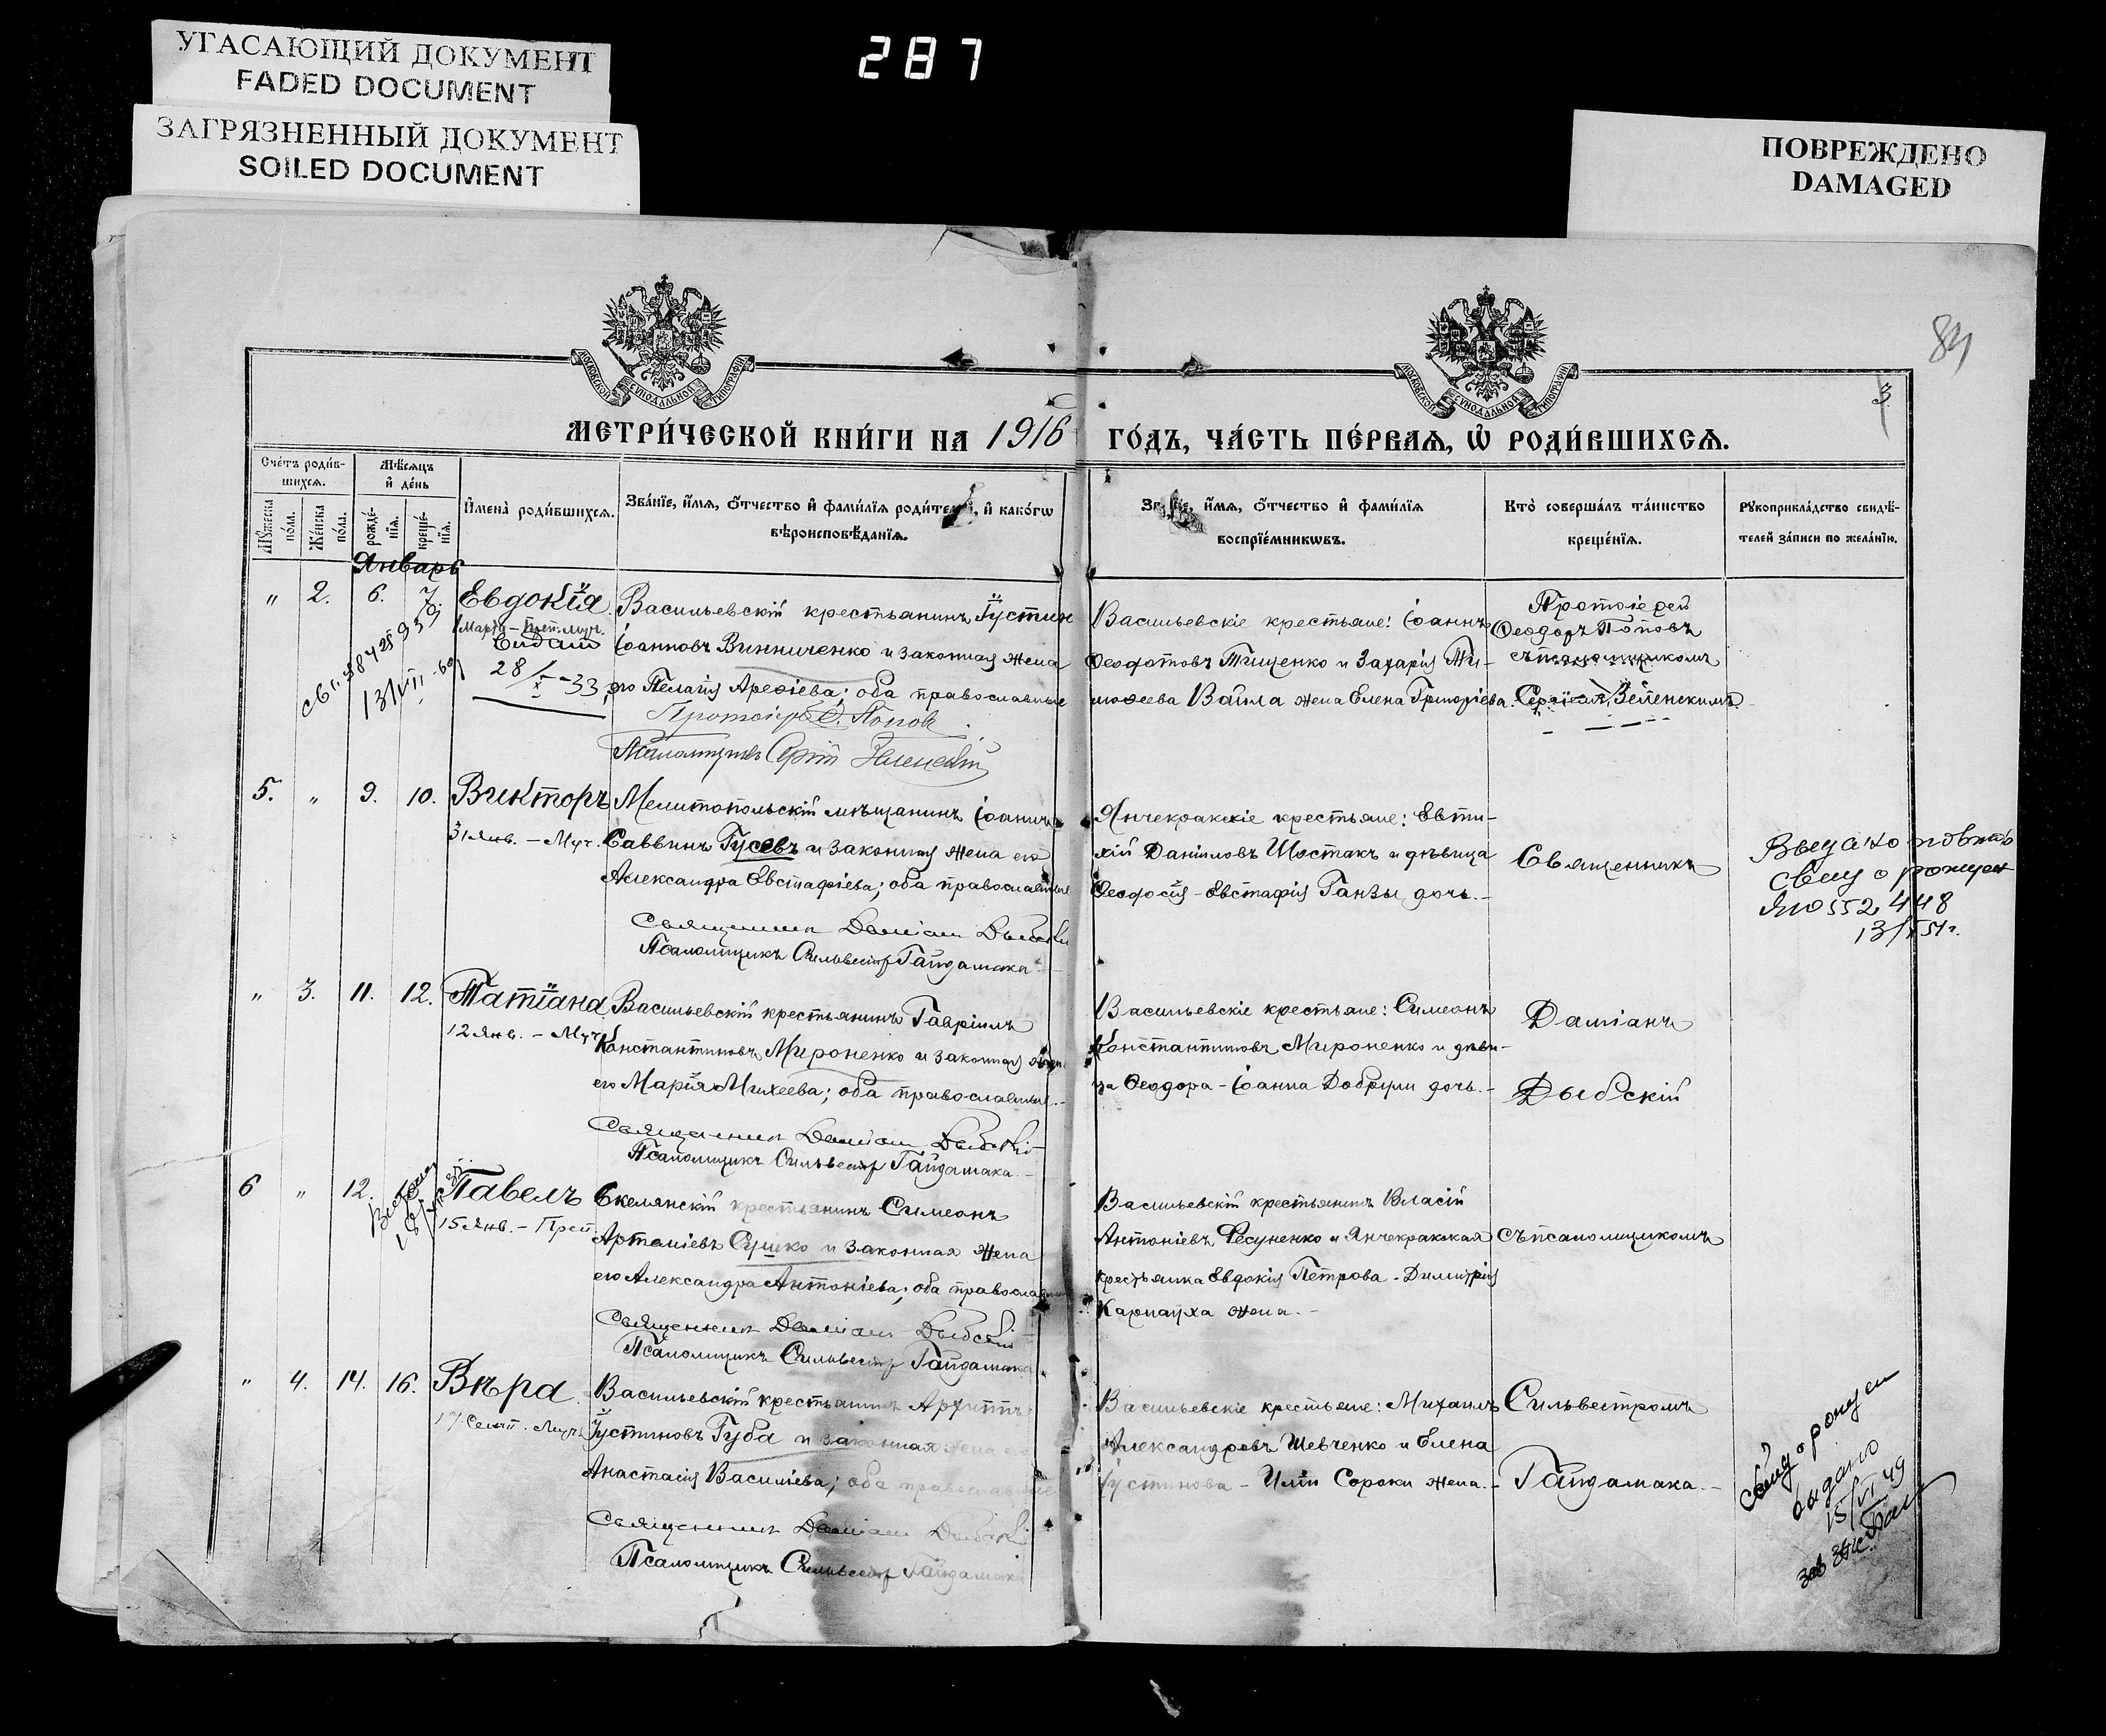 УГАСАЮЩИЙ ДОКУМЕНТ
FADED DOCUMENT
ЗАГРЯЗНЕННЫЙ ДОКУМЕНТ
SOILED DOCUMENT
287
ПОВРЕЖДЕНО
DAMAGED
84
3
МОСКОВСКОЙ СѴНОДАЛЬНОЙ ТИПОГРАФІИ
МОСКОВСКОЙ СѴНОДАЛЬНОЙ ТИПОГРАФІИ
МЕТРИ́ЧЕСКОЙ КНИ́ГИ НА 1916 ГО́ДЪ, ЧА́СТЬ ПЕ́РВАЯ, Ѡ҆ РОДИ́ВШИХСЯ.
Сче́тъ роди́в-
шихся.
Му́жеска по́ла.
Же́нска по́ла.
Мѣ́сяцъ
и҆ де́нь
рожде́-
нїя.
креще́-
нїя.
И҆мена̀ роди́вшихся.
Зва́нїе, и҆́мя, ѻ҆́тчество и҆ фами́лїя роди́телей, и҆ како́гѡ
вѣроисповѣ́данїя.
Зва́нїе, и҆́мя, ѻ҆́тчество и҆ фами́лїя
воспрїе́мникѡвъ.
Кто̀ соверша́лъ та́инство
креще́нїя.
Рꙋкоприкла́дство свидѣ́-
телей за́писи по жела́нїю.
Январь
" 2. 6. 7. Евдокія
Васильевскій крестьянинъ Іустинъ
Іоанновъ Винниченко и законная жена
его Пелагія Арефіева; оба православные
Протоіер. Ѳ. Попов
Псаломщикъ Сергій Зеленскій
Марта – Преп. муч.
28/X–33
13/VII–60
Васильевскіе крестьяне: Іоаннъ
Ѳеодотовъ Тищенко и Захарія Ти-
моѳеева Вайла жена Елена Григоріева.
Протоіерей
Ѳеодоръ Поповъ
съ псаломщикомъ
Сергіемъ Зеленскимъ.
5. " 9. 10. Викторъ
31 Янв. – Муч.
Мелитопольскій мѣщанинъ Іоаннъ
Саввинъ Гусевъ и законная жена его
Александра Евстафіева; оба православные
Священник Даміан Дыбскій
Псаломщикъ Сильвестр Гайдамака
Янчекракскіе крестьяне: Евти-
хій Даніиловъ Шостакъ и дѣвица
Ѳеодосія – Евстафія Ганзы дочь. –
Священникъ
Выдано повтор
свид о рожден
ЯЮ 552448
" 3. 11. 12. Татіана
12 Янв. – Муч.
Васильевскій крестьянинъ Гавріилъ
Константиновъ Мироненко и законная жена
его Марія Михеева; оба православные. –
Священник Даміан Дыбскій
Псаломщикъ Сильвестр Гайдамака. –
Васильевскіе крестьяне: Симеонъ
Константиновъ Мироненко и дѣви-
ца Ѳеодора – Іоанна Добрули дочь. –
Даміанъ
Дыбскій
6 " 12. Павелъ
15 Янв. – Преп.
Скелянскій крестьянинъ Симеонъ
Артеміевъ Сушко и законная жена
его Александра Антоніева; оба православные
Священник Даміан Дыбскій
Псаломщикъ Сильвестр Гайдамака
Васильевскій крестьянинъ Власій
Антоніевъ Фесуненко и Янчекракская
крестьянка Евдокія Петрова – Димитрія
Карнауха жена. –
съ псаломщикомъ
" 4. 14. 16. Вѣра
17 Сент. Муч.
Васильевскій крестьянинъ Архиппъ
Іустиновъ Губа и законная жена его
Анастасія Василіева; оба православные
Священник Даміан Дыбскій
Псаломщикъ Сильвестр Гайдамака
Васильевскіе крестьяне: Михаилъ
Александровъ Шевченко и Елена
Іустинова – Иліи Сороки жена. –
Сильвестромъ
Гайдамака. –
свид о рожден
выдано
15/VI 49
зав